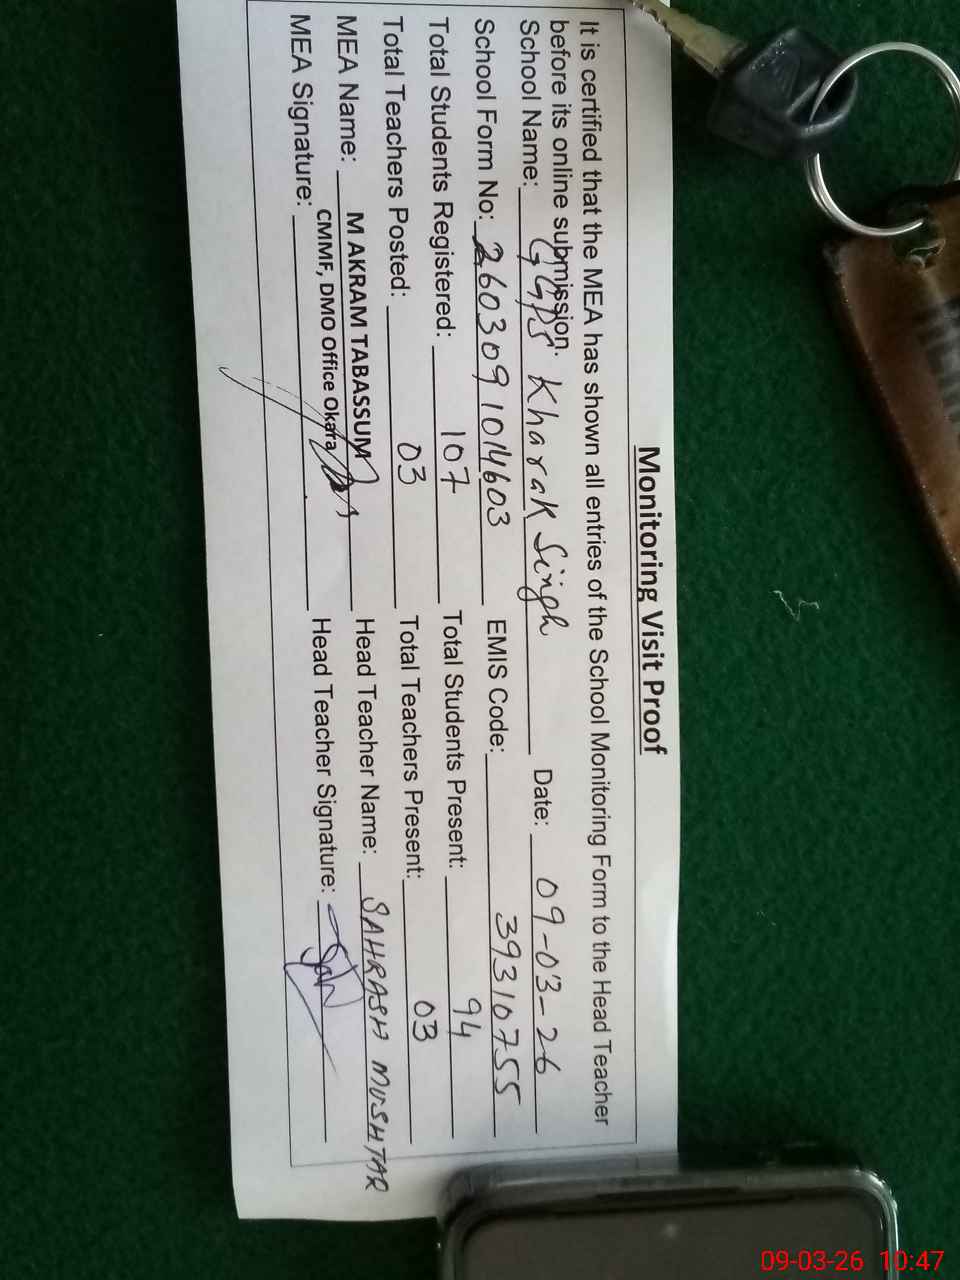 Monitoring Visit Proof
It is certified that the MEA has shown all entries of the School Monitoring Form to the Head Teacher
before its online submission.
School Name: GGPS Kharak Singh Date: 09-03-26
School Form No: 2603091014603 EMIS Code: 39310755
Total Students Registered: 107 Total Students Present: 94
Total Teachers Posted: 03 Total Teachers Present: 03
MEA Name: M AKRAM TABASSUM Head Teacher Name: SAHRASH MUSHTAR
CMMF, DMO Office Okara
MEA Signature: Head Teacher Signature:
09-03-26 10:47